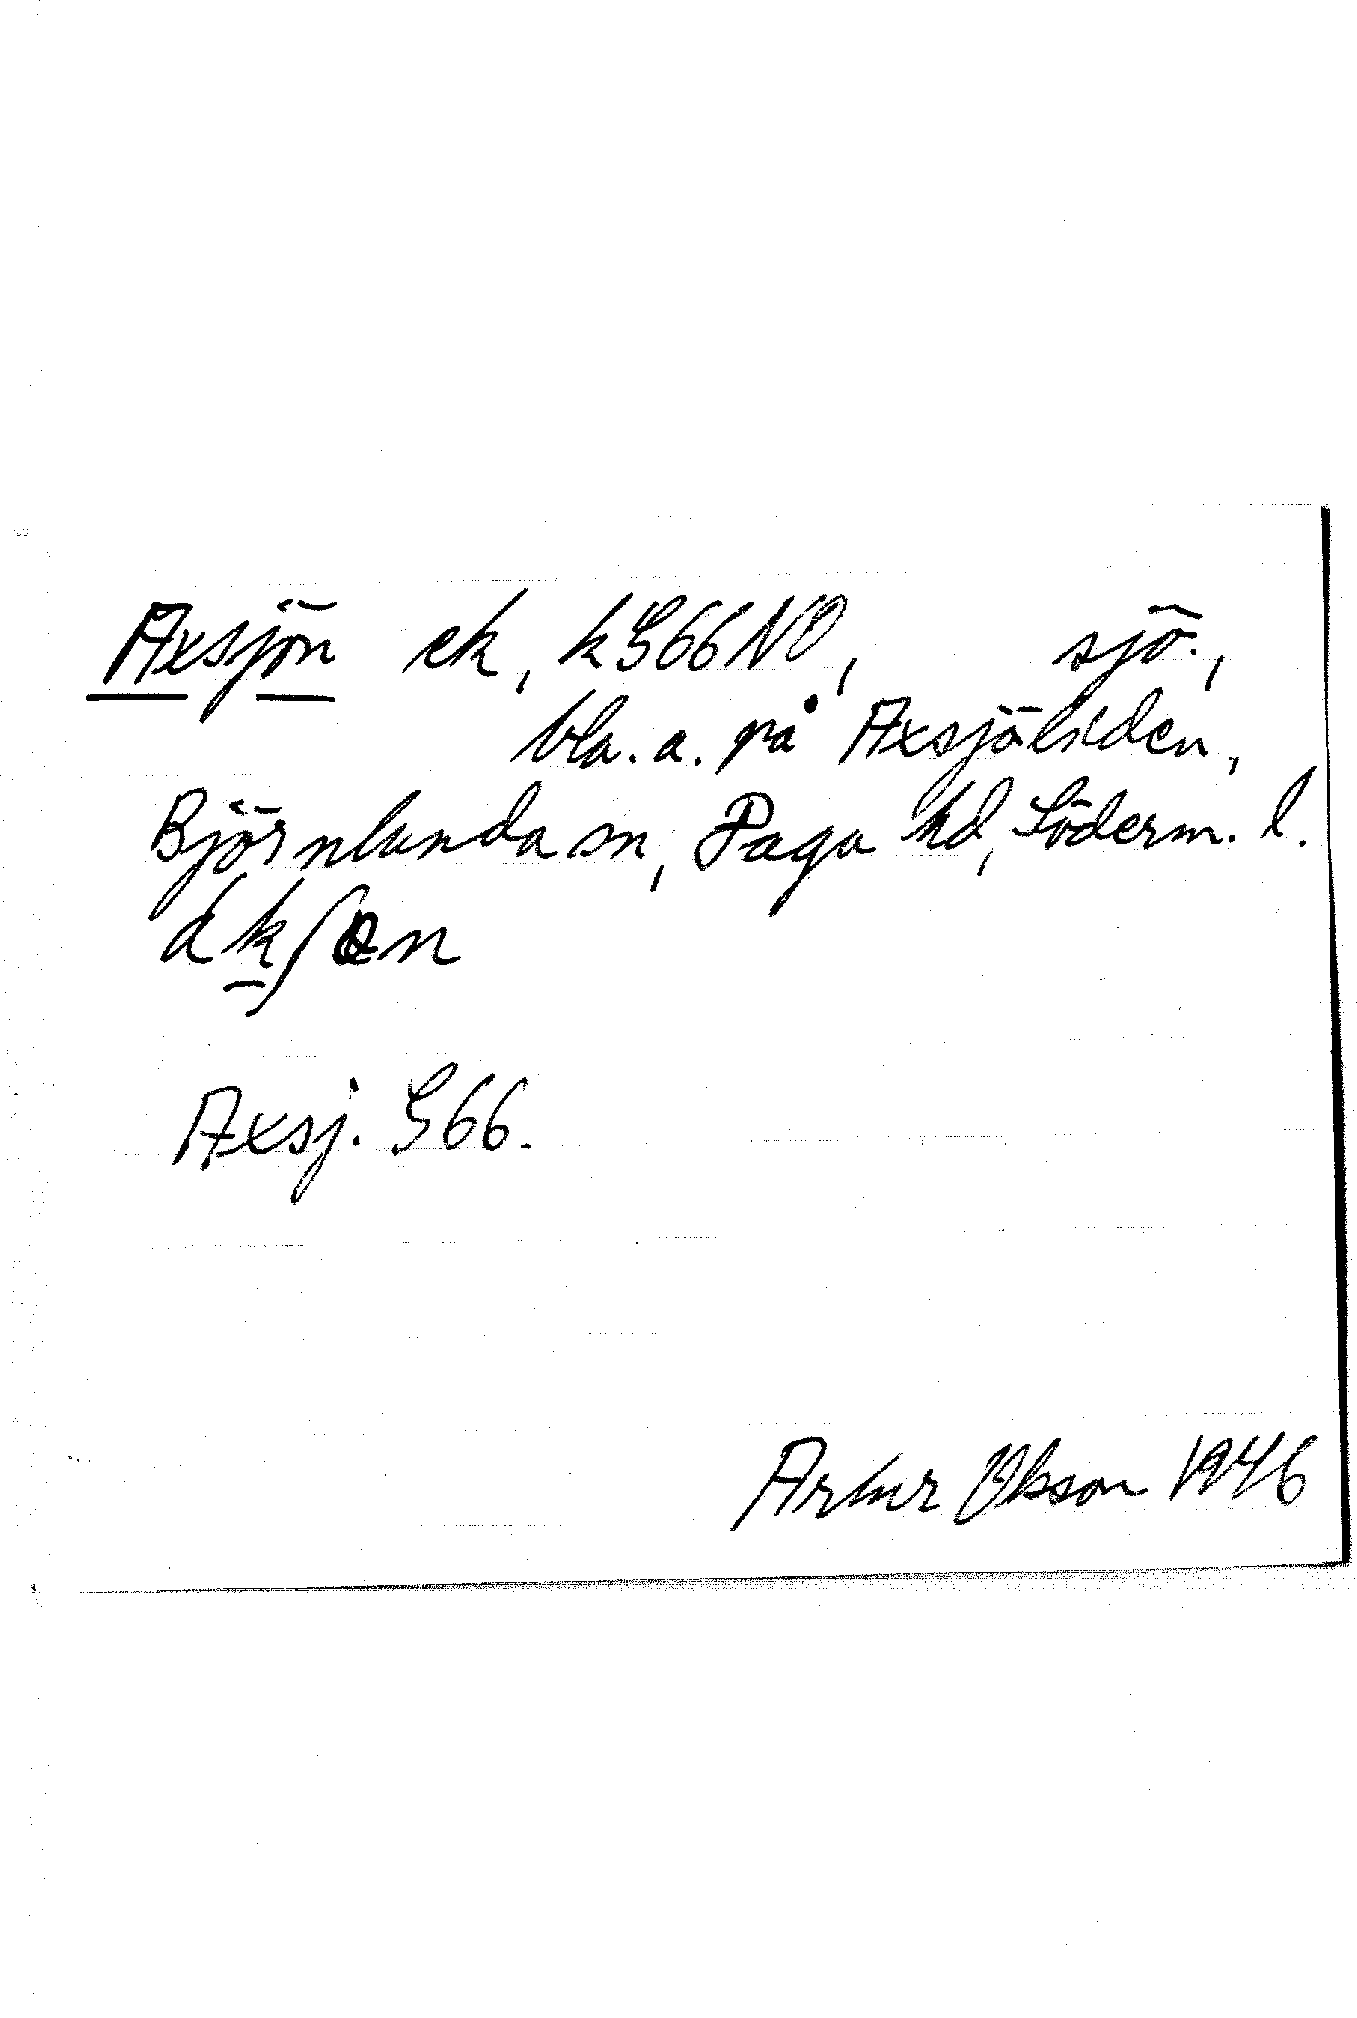 Axsjön ek, k S66 NO, sjö.,
bla. a. på Axsjöliden,
Björnlunda sn, Daga hd, Söderm. l.
Axsj. S66.
Artur 1946